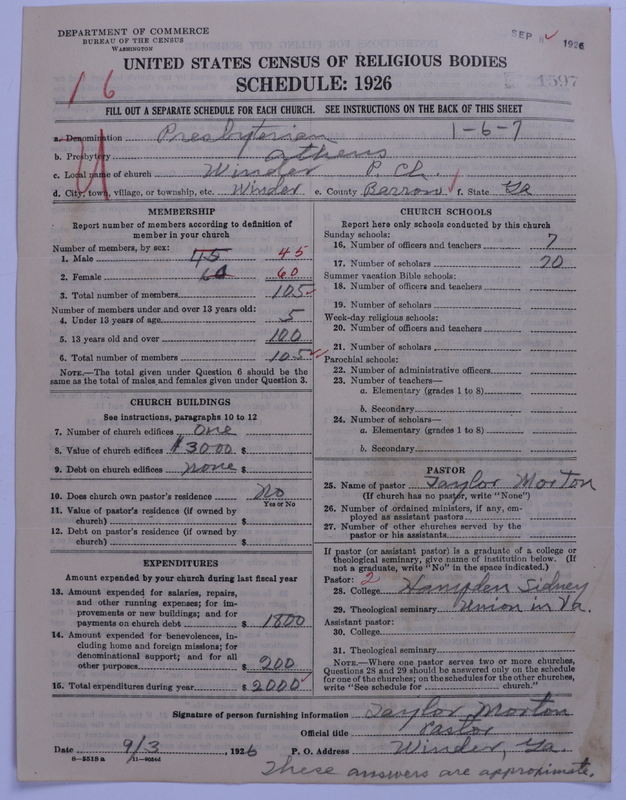 DEPARTMENT OF COMMERCE
BUREAU OF THE CENSUS
WASHINGTON
SEP 1926
UNITED STATES CENSUS OF RELIGIOUS BODIES
SCHEDULE: 1926
16
1597
FILL OUT A SEPARATE SCHEDULE FOR EACH CHURCH. SEE INSTRUCTIONS ON THE BACK OF THIS SHEET
a. Denomination Presbyterian 1-6-7
b. Presbytery Athens
c. Local name of church Winder P. Ch.
d. City, town, village, or township, etc. Winder e. County Barrow f. State Ga
MEMBERSHIP
Report number of members according to definition of
member in your church
Number of members, by sex:
1. Male 45 45
2. Female 60 60
3. Total number of members 105
Number of members under and over 13 years old:
4. Under 13 years of age 5
5. 13 years old and over 100
6. Total number of members 105
NOTE.—The total given under Question 6 should be
same as the total of males and females given under Question 3.
CHURCH BUILDINGS
See instructions, paragraphs 10 to 12
7. Number of church edifices one
8. Value of church edifices $3000 $
9. Debt on church edifices none $
10. Does church own pastor's residence No
Yes or No
11. Value of pastor's residence (if owned by
church) $
12. Debt on pastor's residence (if owned by
church) $
EXPENDITURES
Amount expended by your church during last fiscal year
13. Amount expended for salaries, repairs,
and other running expenses; for im-
provements or new buildings; and for
payments on church debt $ 1800
14. Amount expended for benevolences, in-
cluding home and foreign missions; for
denominational support; and for all
other purposes $ 200
15. Total expenditures during year $ 2000
CHURCH SCHOOLS
Report here only schools conducted by this church
Sunday schools:
16. Number of officers and teachers 7
17. Number of scholars 70
Summer vacation Bible schools:
18. Number of officers and teachers
19. Number of scholars
Week-day religious schools:
20. Number of officers and teachers
21. Number of scholars
Parochial schools:
22. Number of administrative officers
23. Number of teachers—
a. Elementary (grades 1 to 8)
b. Secondary
24. Number of scholars—
a. Elementary (grades 1 to 8)
b. Secondary
PASTOR
25. Name of pastor Taylor Morton
(If church has no pastor, write "None")
26. Number of ordained ministers, if any, em-
ployed as assistant pastors
27. Number of other churches served by the
pastor or his assistants
If pastor (or assistant pastor) is a graduate of a college or
theological seminary, give name of institution below. (If
not a graduate, write "No" in the space indicated.)
Pastor: 2
28. College Hampden Sidney
29. Theological seminary Union in Va.
Assistant pastor:
30. College
31. Theological seminary
NOTE.—Where one pastor serves two or more churches,
Questions 28 and 29 should be answered only on the schedule
for one of the churches; on the schedules for the other churches,
write "See schedule for church."
Signature of person furnishing information Taylor Morton
Official title Pastor
Date 9/3, 1926 P. O. Address Winder, Ga.
8—5518 a
These answers are approximate.